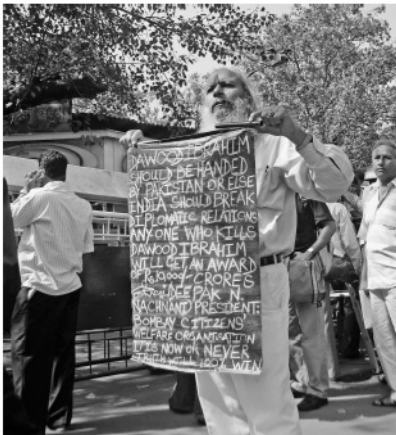 DAWOOD IBRAHIM
SHOULD BE HANDED
BY PAKISTAN OR ELSE
INDIA SHOULD BREAK
DIPLOMATIC RELATIONS
ANYONE WHO KILLS
DAWOOD IBRAHIM
WILL GET AN AWARD
OF RS. 10,000/- CRORES
FROM DEEPAK N.
NACHNANI PRESIDENT:
BOMBAY CITIZENS'
WELFARE ORGANISATION
IT IS NOW OR NEVER
TRUTH WILL WIN